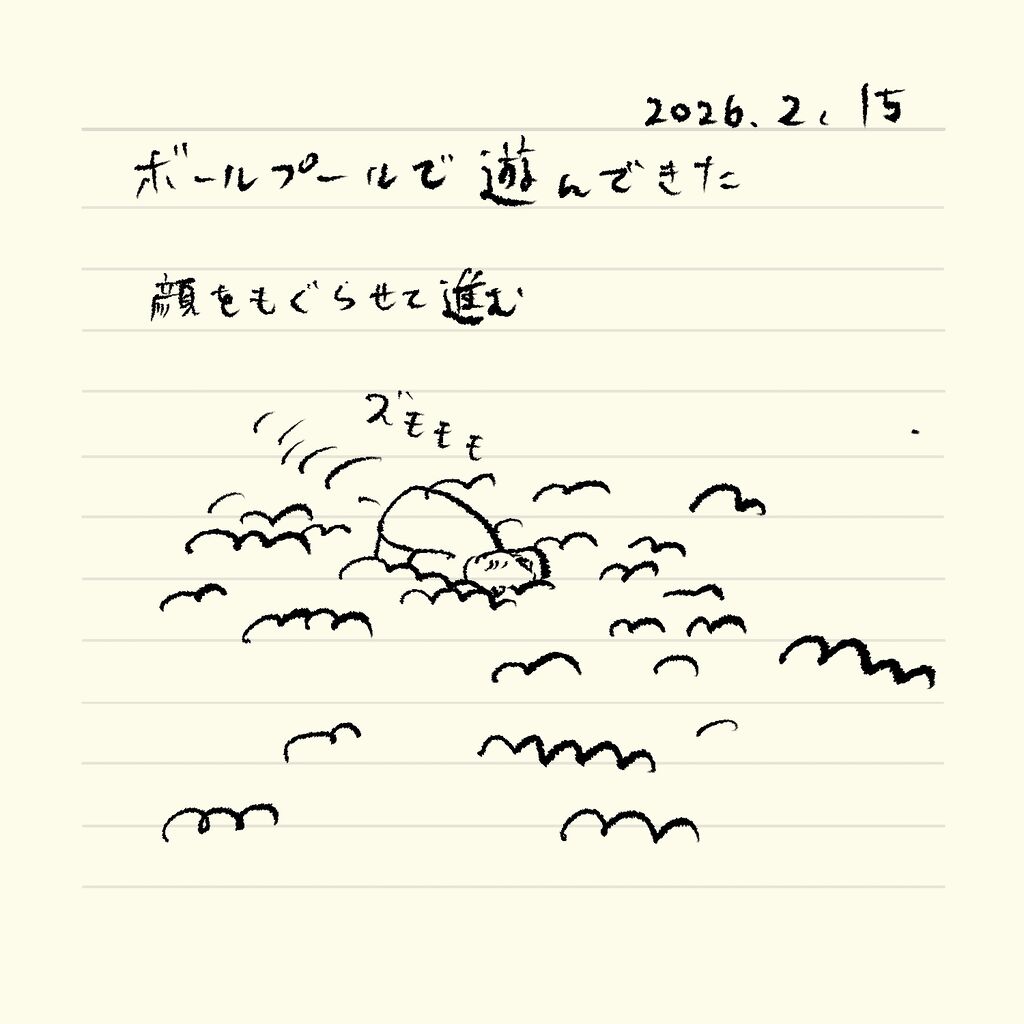 2026.2.15
ボールプールで遊んできた
顔をもぐらせて進む
ズモモモ